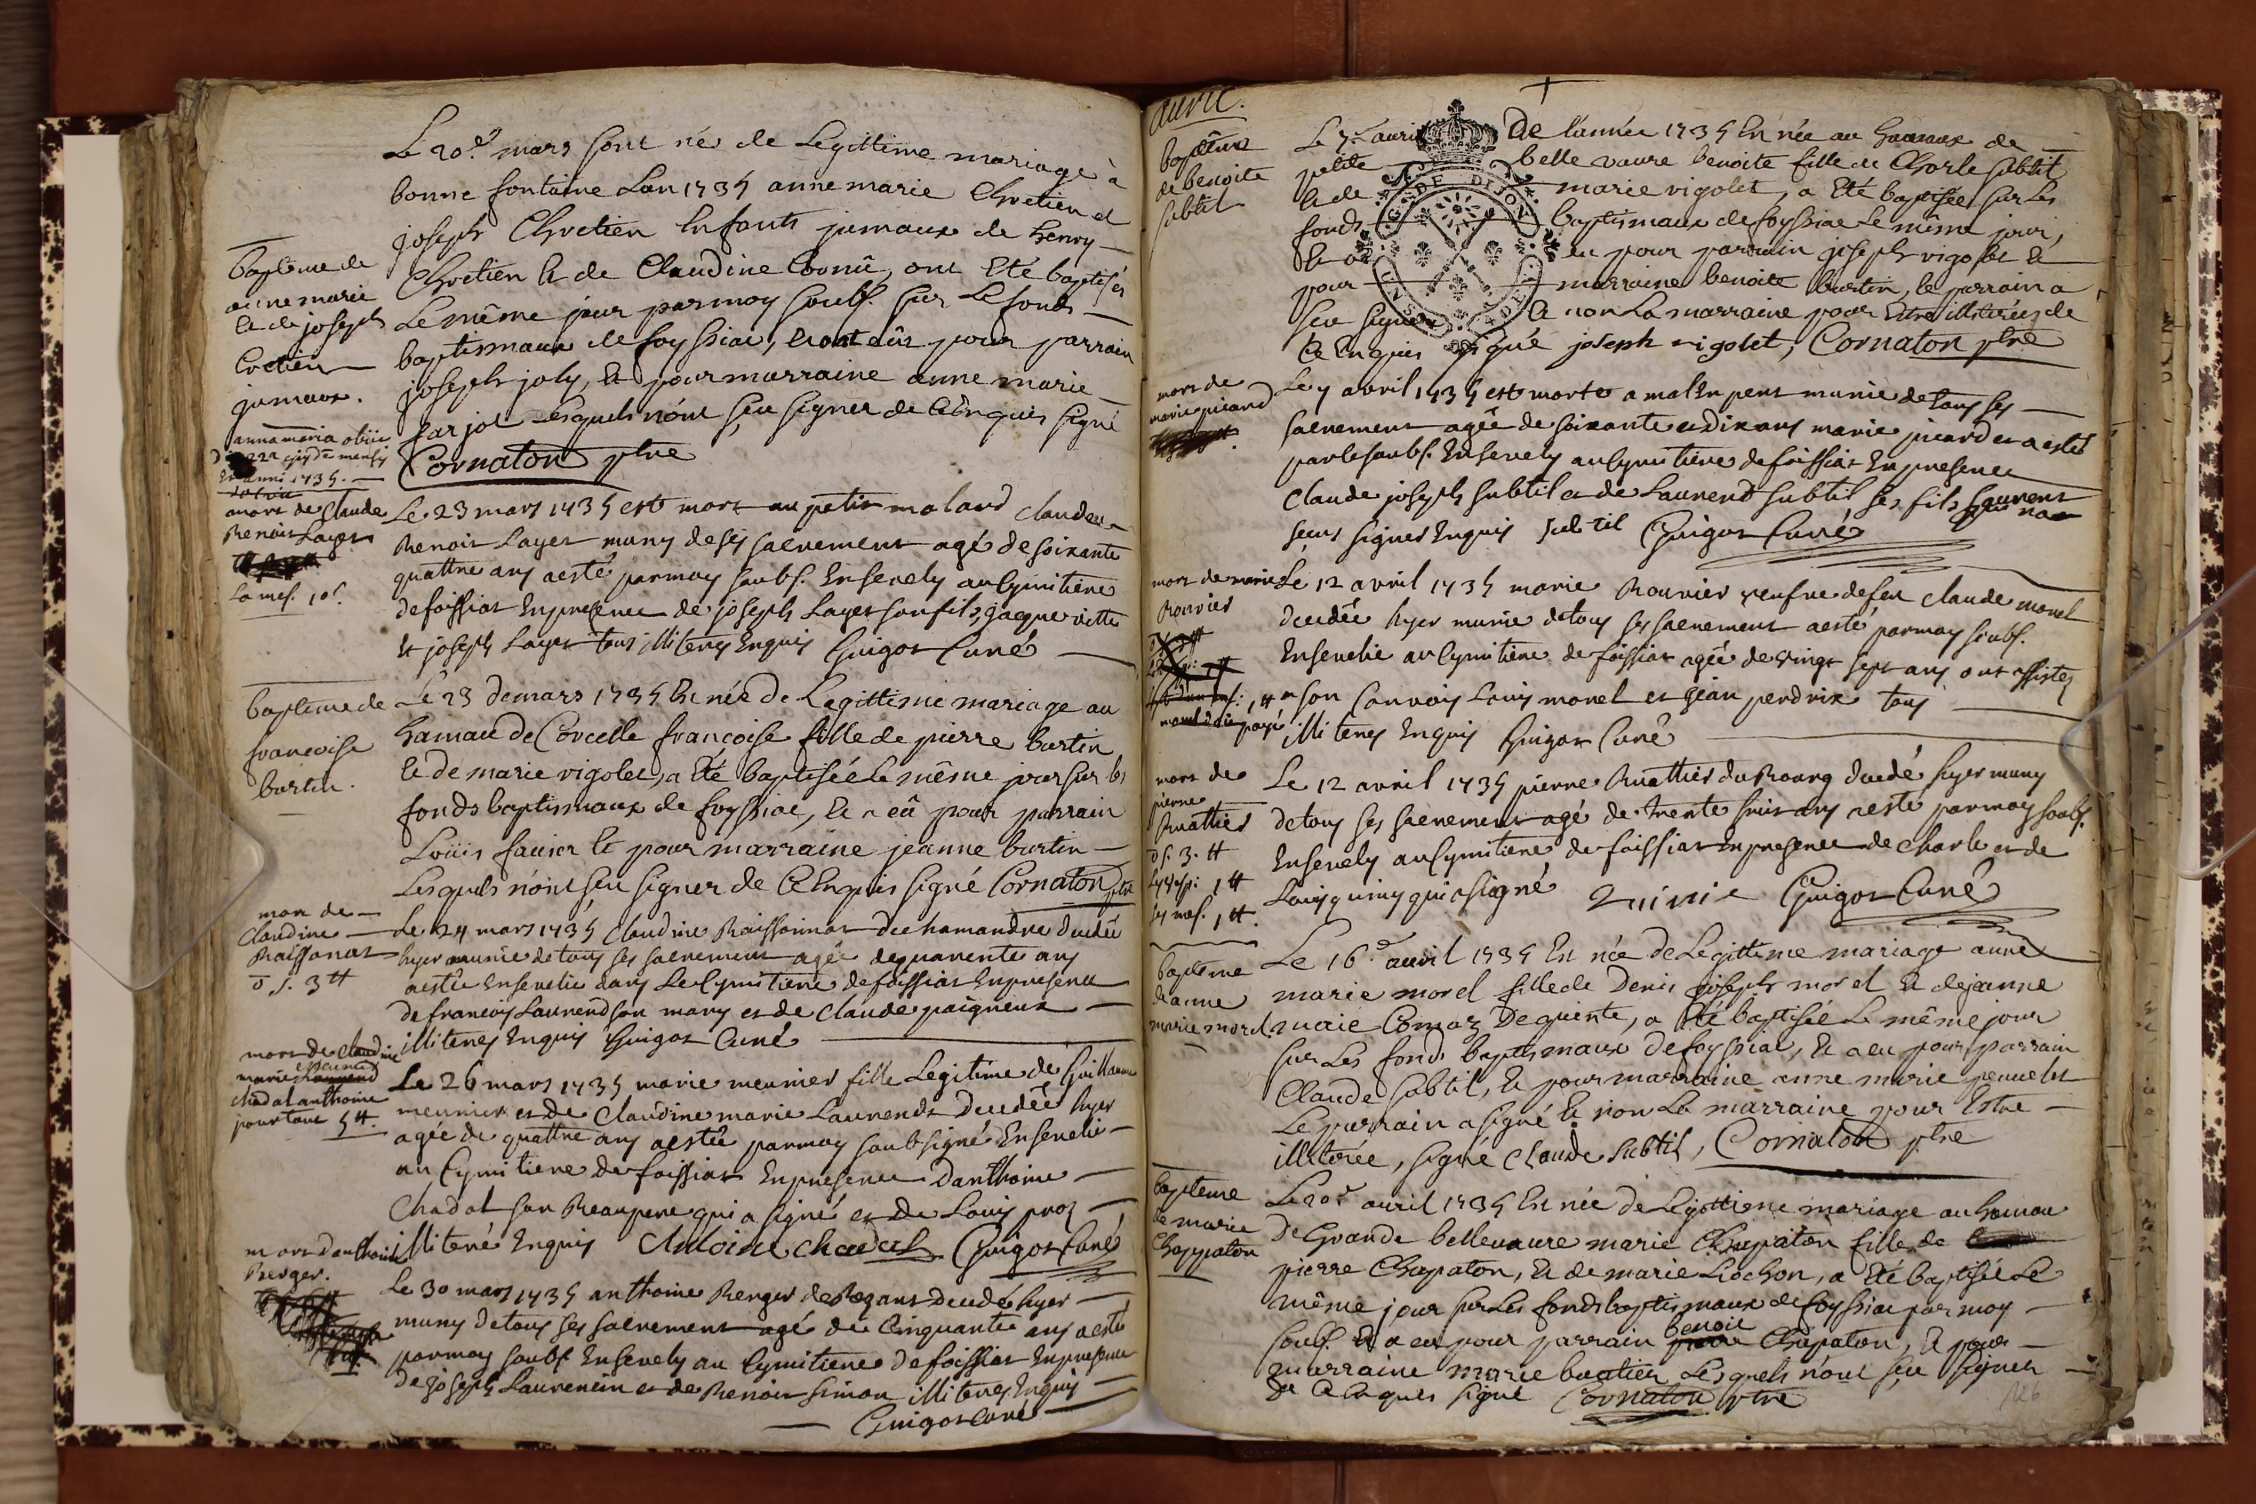 Le 20.e mars sont nés de Legittime mariage à
bonne fontaine Lan 1735 anne marie Chretien et
joseph Chretien Enfants jumaux de henry
Chretien et de Claudine Cornû, ont Eté baptisés
Le même jour par moy soubs. sur Le fonds
baptismaux de foyssiac, et ont eûs pour parrain
joseph joly, et pour marraine anne marie
farjot Lesquels n'ont sçu signer de Ce Enquis signé
Cornaton ptre
baptême de
anne marie
et de joseph
Cretien
jumaux.
anna maria obiit
die 22a ejusde mensis
anni 1735.
mort de Claude
Benoit Layet
La mes. 10s.
Le 23 mars 1735 est mort au petit molard claude
Benoit Layet muny de ses sacrement agé de soixante
quattre ans a esté par moy soubs. Ensevely au Cymitiere
de foissiat En presence de joseph Layet son fils, jaque vitte
et joseph Layet tous illiterés Enquis Guigot Curé
baptême de
françoise
burtin.
Le 23 de mars 1735 Est née de Legittime mariage au
hamau de Corcelle françoise fille de pierre burtin
et de marie vigolet, a Eté baptisée Le même jour sur les
fonds baptismaux de foyssiac, et a eû pour parrain
Loüis faurer et pour marraine jeanne burtin
Lesquels n'ont sçu signer de Ce Enquis signé Cornaton ptre
mort de
Claudine
Raissonnat
d s. 3 tt
Le 24 mars 1735 Claudine Raissonnat de chamandre decedée
hyer munie de tous ses sacrement agée de quarente ans
a estée Ensevelie dans Le Cymitiere de foissiat En presence
de francois Laurend son mary et de Claude paigneux
illiterés Enquis Guigot Curé
mort de claudine
marie meunier
chadal anthoine
pour tout 5 tt.
Le 26 mars 1735 marie meunier fille Legitime de Guillaume
meunier et de Claudine marie Laurendt decedée hyer
agée de quattre ans a estée par moy soubsigné Ensevelie
au Cymitiere de foissiat En presence d'anthoine
Chadal son Beaupere qui a signé et de Louis proz
illiteré Enquis Antoine chadal Guigot Curé
mort d'anthoine
Berger.
Le 30 mars 1735 anthoine Berger de Regans decedé hyer
muny de tous ses sacrement agé de Cinquante ans a esté
par moy soubs. Ensevely au Cymitiere de foissiat En presence
de joseph Laurencin et de Benoit simon illiterés Enquis
Guigot Curé
avril.
baptême
de benoite
subtil
Le 7.e avril de l'année 1735 Est née au hamaux de
petite belle vavre benoite fille de Charle subtil
et de marie vigolet, a Eté baptisée sur Les
fonds baptismaux de foyssiac Le même jour,
et a eu pour parrain joseph vigolet et
pour marraine benoite burtin, le parrain a
sçu signer et non La marraine pour Estre illiterée, de
Ce Enquis signé joseph vigolet, Cornaton ptre
GE DE DIJON
mort de
marie picard
Le 7 avril 1735 est morte a malEnpent munie de tous ses
sacrement agée de soixante et dix ans marie picard et a estée
par le soubs. Ensevely au Cymitiere de foissiat En presence
Claude joseph subtil et de Laurend subtil ses fils Laurent
sceus signer Enquis subtil Guigot Curé
mort de marie
Rouvier
Le 12 avril 1735 marie Rouvier veufve de feu claude morel
decedée hyer munie de tous ses sacrement a esté par moy soubs.
Ensevelie au Cymitiere de foissiat agée de vingt sept ans ont assistez
a son Convoy Louis morel et jean perdrix tous
illiterés Enquis Guigot Curé
mort de
pierre
Ruattier
d s. 3. tt
Les vespr: 1 tt
La mes. 1 tt.
Le 12 avril 1735 pierre Ruattier du Bourg decedé hyer muny
de tous ses sacrement agé de trente huit ans a esté par moy soubs.
Ensevely au Cymitiere de foissiat En presence de charle et de
Louis quiny qui a signé Quinie Guigot Curé
baptême
de anne
marie morel
Le 16.e avril 1735 Est née de Legittime mariage anne
marie morel fille de Denis joseph morel et de jeanne
marie Comaz de quinte, a Eté baptisée Le même jour
sur Les fonds baptismaux de foyssiac, et a eu pour parrain
Claude subtil, et pour marraine anne marie
Le parrain a signé et non La marraine pour Estre
illiterée, signé Claude subtil, Cornaton ptre
baptême
de marie
Chappaton
Le 20.e avril 1735 Est née de Legittime mariage au hamau
de Grande bellevavre marie Chapaton fille de
pierre Chapaton, et de marie Liochon, a Eté baptisée Le
même jour sur Les fonds baptismaux de foyssiac par moy
soubs. et a eu pour parrain benoit Chapaton, et pour
marraine marie buatier Lesquels n'ont sçu signer
de Ce Enquis signé Cornaton ptre